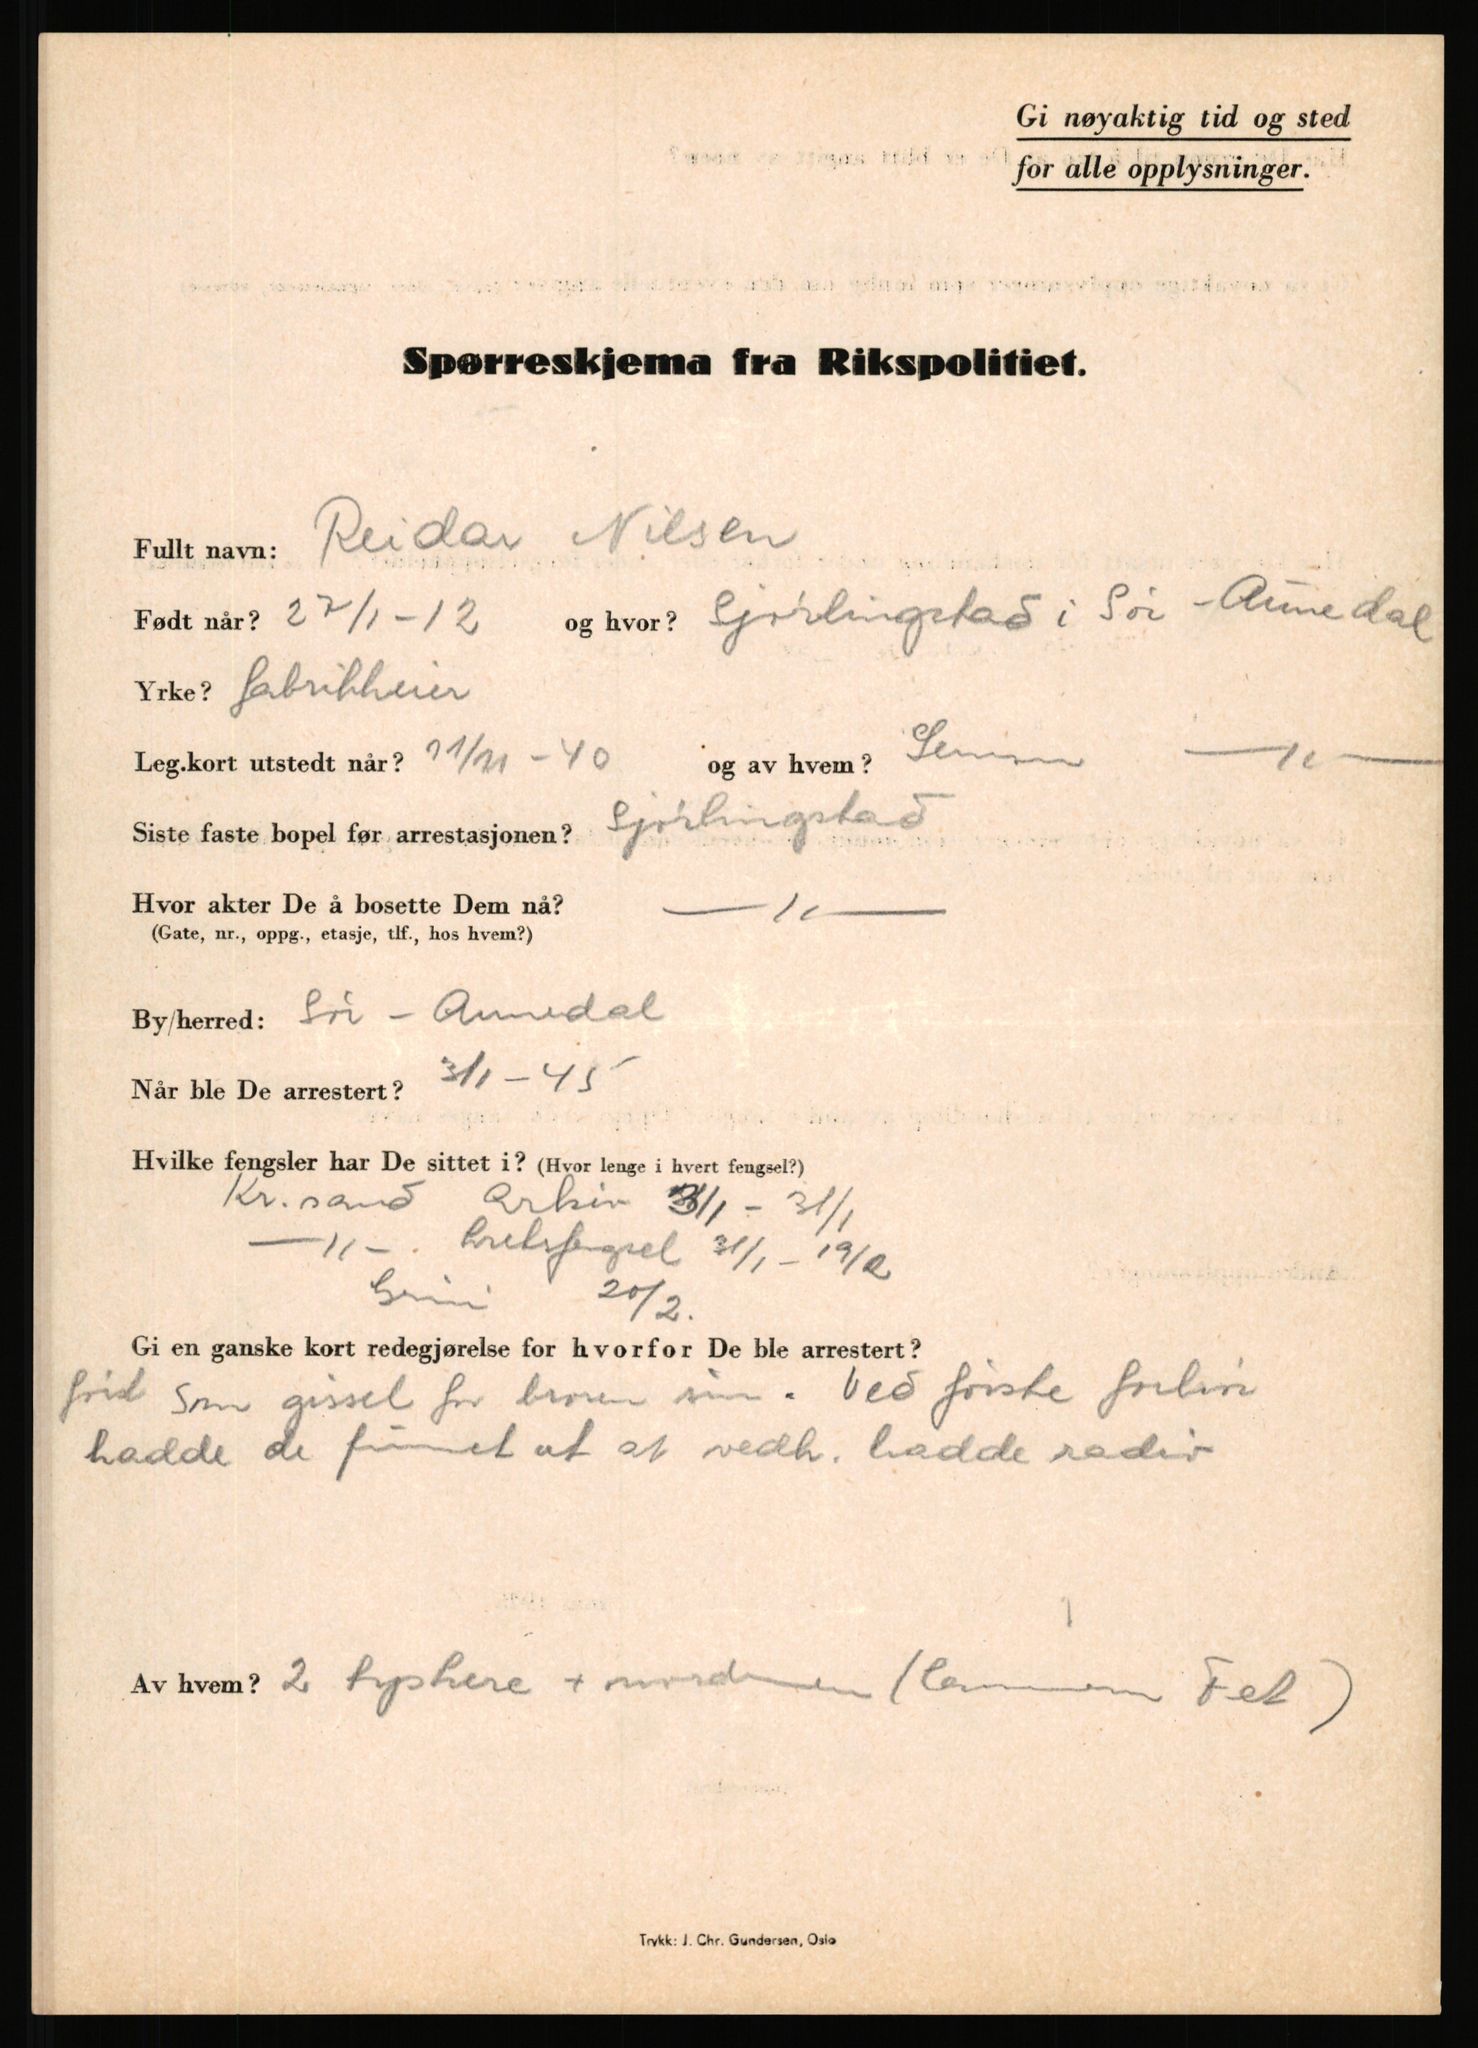 Gi nøyaktig tid og sted
for alle opplysninger.
Spørreskjema fra Rikspolitiet.
Fullt navn: Reidar Nilsen
Født når? 27/1 - 12 og hvor? Sjölingstad i Sör - Aunedal
Yrke? fabrikkeier
Leg.kort utstedt når? - 40 og av hvem? —"—
Siste faste bopel før arrestasjonen? Sjölingstad
Hvor akter De å bosette Dem nå? —"—
(Gate, nr., oppg., etasje, tlf., hos hvem?)
By/herred: Sör - Aunedal
Når ble De arrestert? 3/1 - 45
Hvilke fengsler har De sittet i? (Hvor lenge i hvert fengsel?)
Kr.sand Arkiv 3/1 - 31/1
—"—. kretsfengsel 31/1 - 19/2
Grini 20/2.
Gi en ganske kort redegjørelse for hvorfor De ble arrestert?
först som gissel for broren sin. Ved förste forhör
hadde de funnet ut at vedk. hadde radio
Av hvem? 2 tyskere + nordmen ( Fet)
Trykk: J. Chr. Gundersen, Oslo